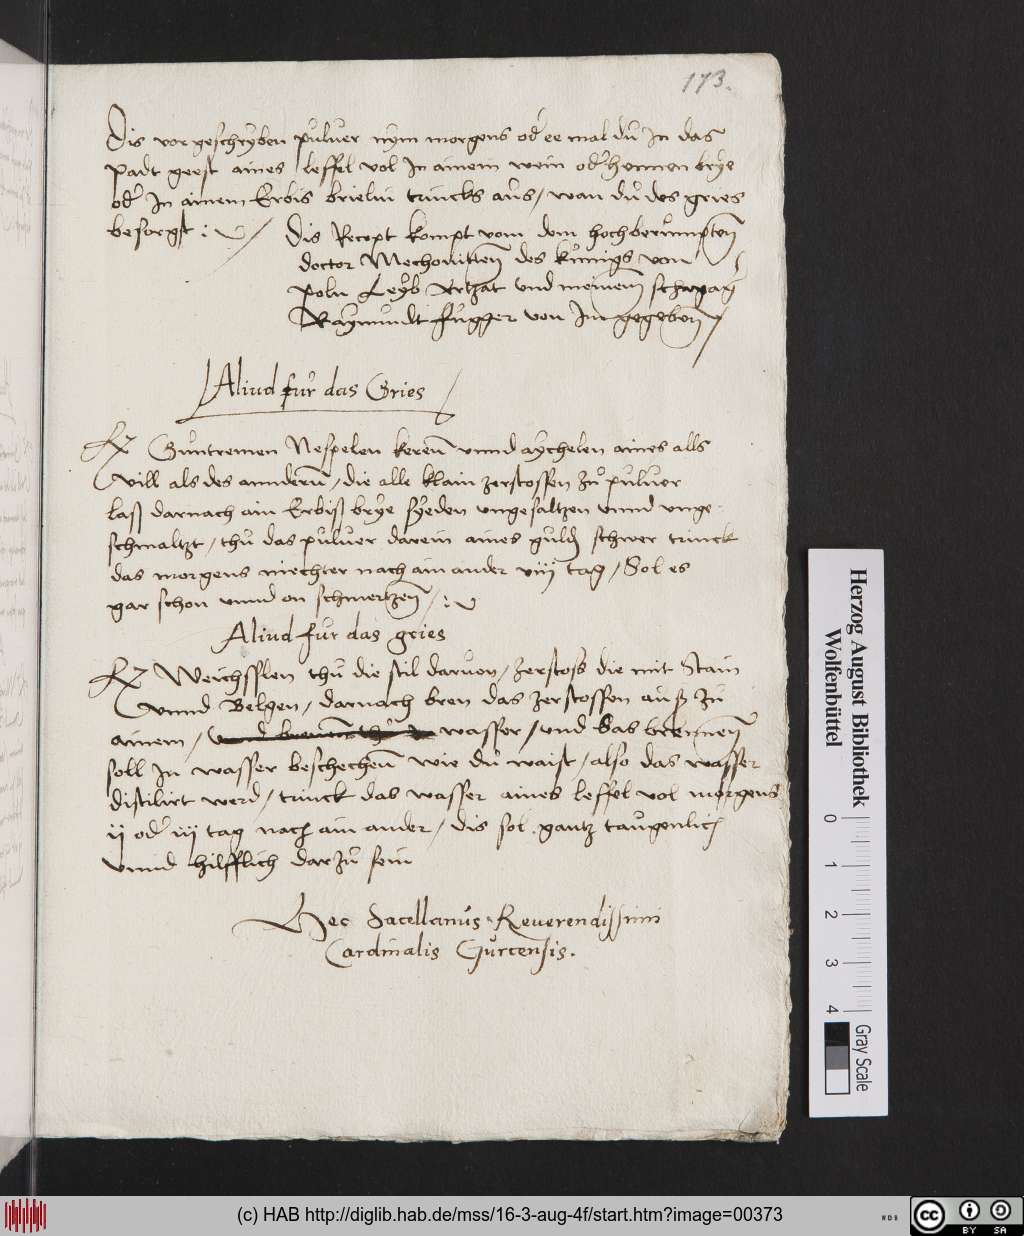 173.
Dis vorgeschryben pulver nym morgens oder ee mal du In das
padt geest aines leffel vol In ainem wein oder hennen brye
oder In ainem Erbis brielin trincks aus / wan du des gries
besorgst :
Dis Recept kompt vom dem hochberumpten
doctor des kunigs von
poln Leyb Artzat und meinem schwager
Raymundt Fugger von Im gegeben
Aliud fur das Gries
Rx Nespelen keren unnd aychelen aines alls
vill als des anndern / die alle klain zerstossen zu pulver
lass darnach ain Erbiss brye syeden ungesaltzen unnd unge-
schmaltzt / thu das pulver darein aines guld schwer trinck
das morgens niechter nach ain ander viij tag / Sol es
gar schon unnd on schmertzen /:
Aliud fur das gries
Rx Weichsslen thu die stil darvon / zerstoss die mit Stain
unnd Belgen / darnach bren das zerstossen auss zu
ainem / wasser / und das brennen
soll In wasser beschechen wie du waist / also das wasser
distilirt werd / trinck das wasser aines leffel vol morgens
ij oder iij tag nach ain ander / dis sol gantz taugenlich
unnd hilfflich darzu sein
Hec Sacellanus Reverendissimi
Cardinalis Gurcensis.
Herzog August Bibliothek
Wolfenbüttel
0 1 2 3 4
Gray Scale
(c) HAB http://diglib.hab.de/mss/16-3-aug-4f/start.htm?image=00373
WDB
cc BY SA